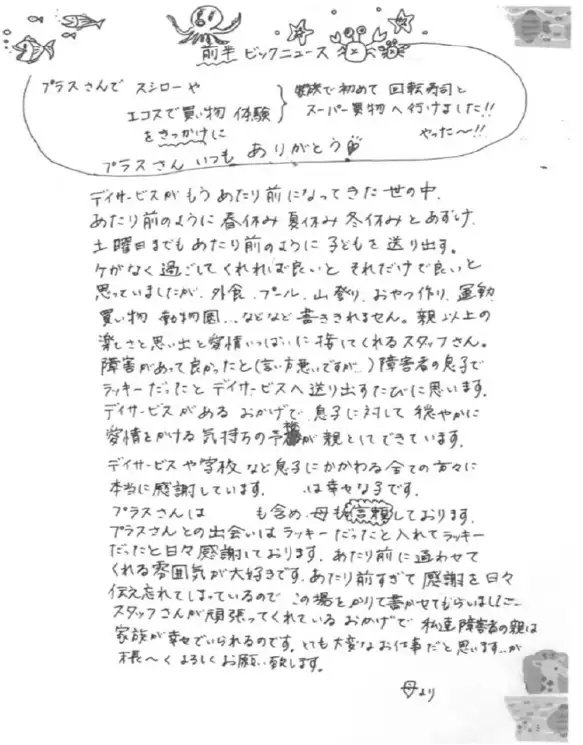 前半 ビックニュース
プラスさんで スシローや
エコスで買い物 体験
をきっかけに
家族で初めて 回転寿司と
スーパー買物へ行けました!!
やった〜!!
プラスさん いつも ありがとう
デイサービスが もう あたり前になってきた 世の中.
あたり前のように 春休み 夏休み 冬休み とあずけ.
土曜日までも あたり前のように 子どもを 送り出す。
ケガなく 過ごしてくれれば良いと それだけで良いと
思っていましたが. 外食. プール. 山登り. おやつ作り. 運動.
買い物 動物園... などなど 書ききれません。親以上の
楽しさと思い出と愛情いっぱいに 接してくれるスタッフさん。
障害があって良かったと(言い方悪いですが...)障害者の息子で
ラッキーだったと デイサービスへ 送り出すたびに思います.
デイサービスがある おかげで 息子に対して 穏やかに
愛情をかける 気持ちの 予備が 親としてできています.
デイサービスや学校など息子にかかわる全ての方々に
本当に感謝しています. は幸せな子です.
プラスさんは も含め 母も信頼しております.
プラスさんとの出会いはラッキーだったと入れてラッキー
だったと日々感謝しております. あたり前に通わせて
くれる雰囲気が大好きです. あたり前すぎて 感謝を日々
伝え忘れてしまっているので この場をかりて書かせてもらいました...
スタッフさんが頑張ってくれている おかげで 私達障害者の親は
家族が幸せでいられるのです. とても大変なお仕事だと思います...が
末長〜く よろしくお願い致します.
母より